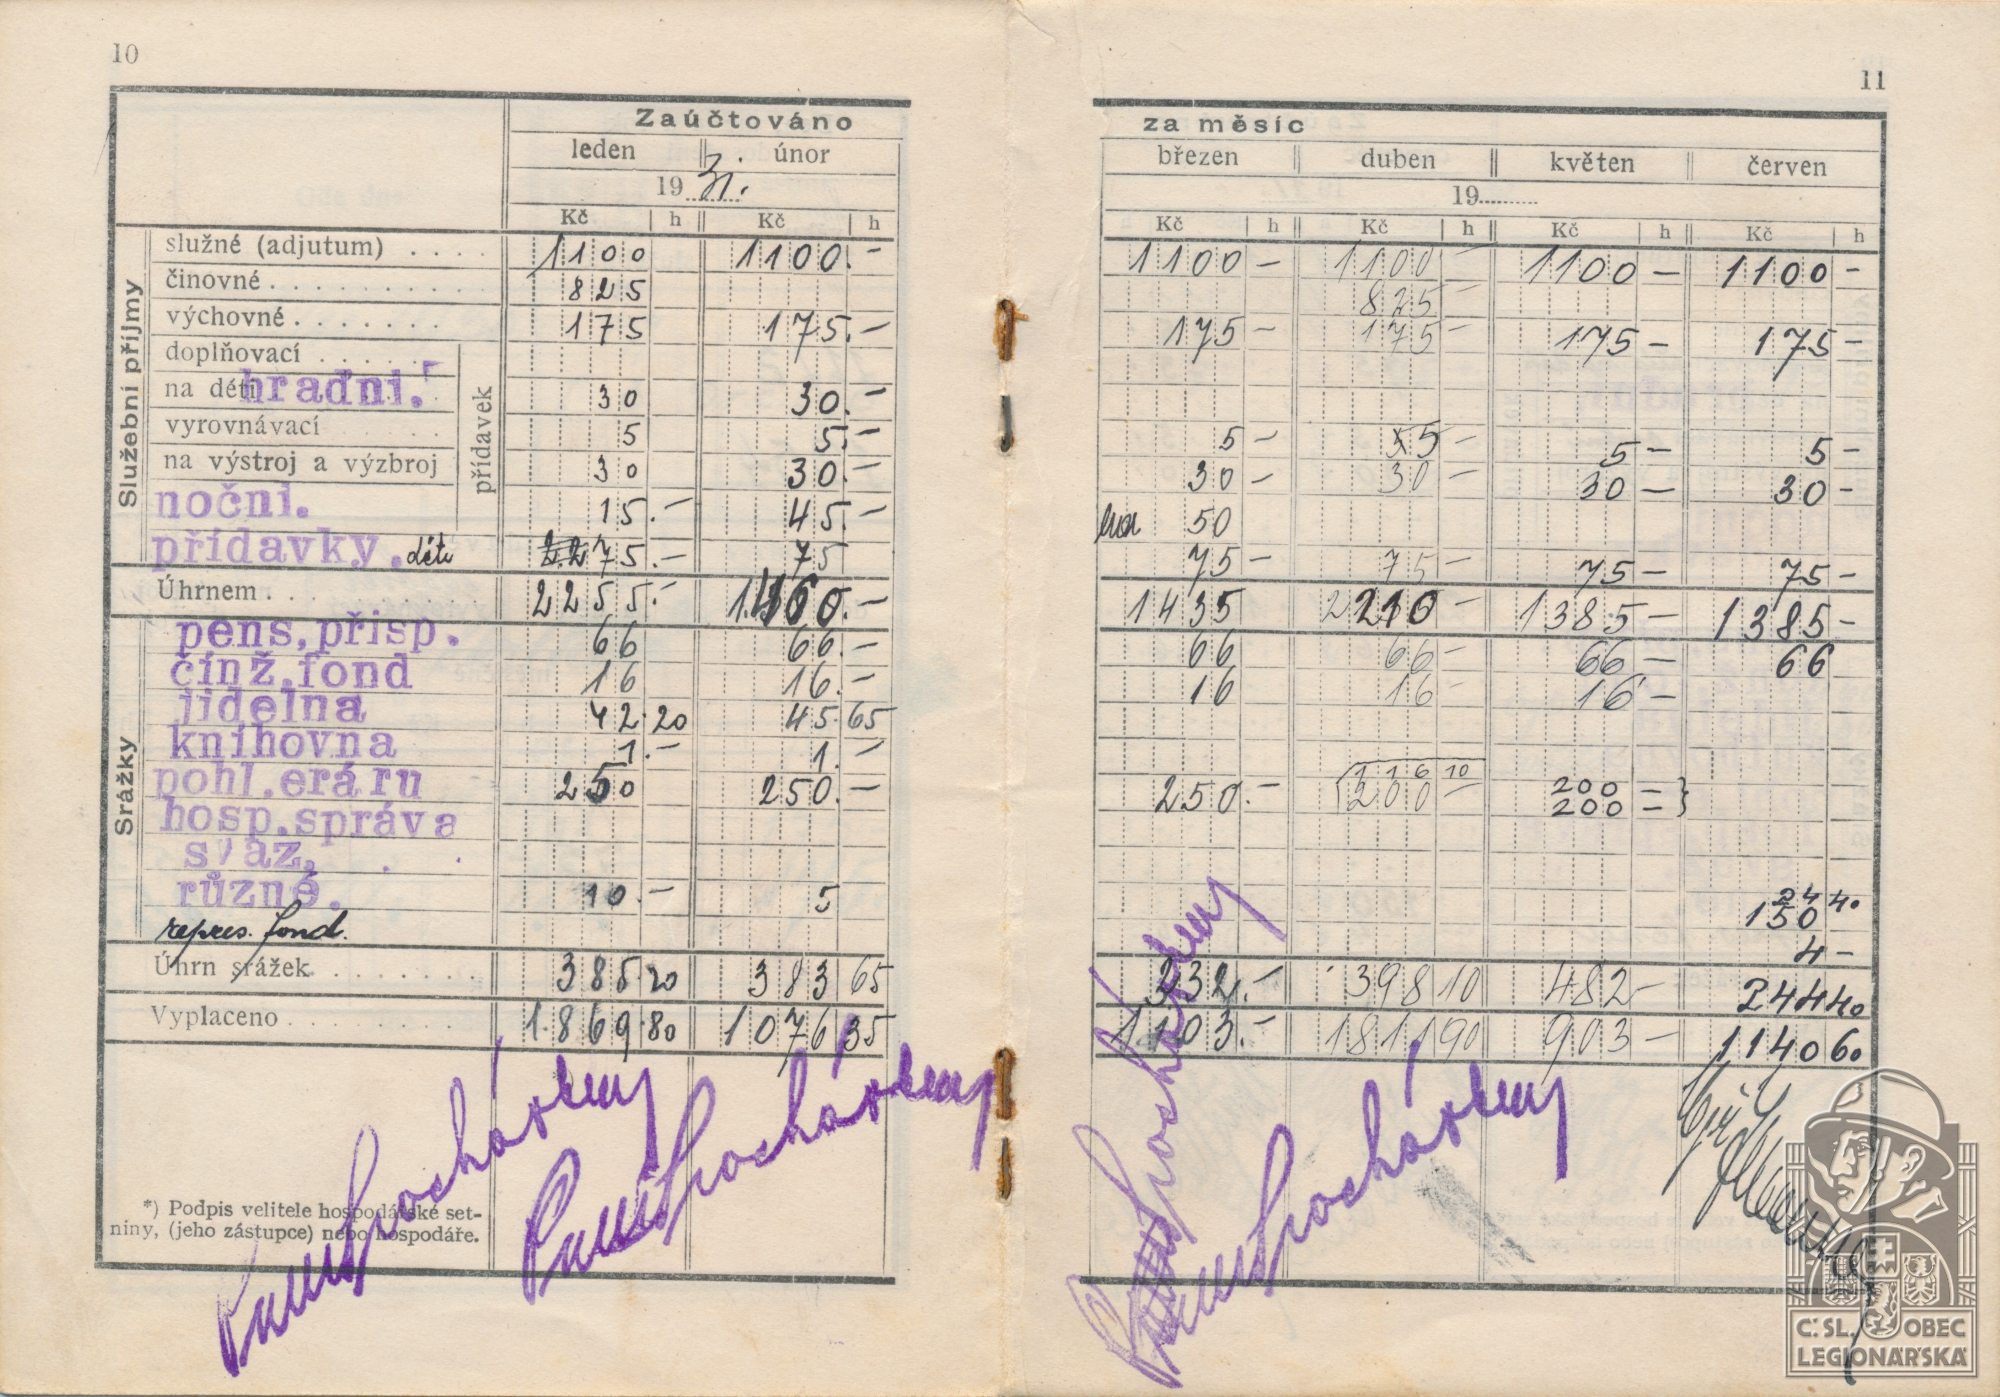 10
Zaúčtováno
leden || únor
19 31.
Kč | h || Kč | h
služné (adjutum) . . . . 1100 1100.—
činovné . . . . . . . . . . 825
výchovné . . . . . . . 175 175.—
doplňovací . . . . .
na děti hradní. 30 30.—
vyrovnávací 5 5.—
na výstroj a výzbroj 30 30.—
přídavek
Služební příjmy
noční. 15.— 45.—
přídavky. děti 75.— 75
Úhrnem . . . . . . . . . . 2255.—
pens, přisp. 66 66.—
činž. fond 16 16.—
jídelna 42.20 45.65
knihovna 1.— 1.—
pohl. eráru 250 250.—
hosp. správa
svaz,
různé. 10.— 5
repres. fond.
Srážky
Úhrn srážek . . . . . . . 385 20 383 65
Vyplaceno . . . . . . . . . 1.869.80 1076 35
*) Podpis velitele hospodářské set-
niny, (jeho zástupce) nebo hospodáře.
11
za měsíc
březen || duben || květen || červen
19..........
Kč | h || Kč | h || Kč | h || Kč | h
1100 — 1100 — 1100 — 1100 —
825 —
175 — 175 — 175 — 175 —
5 — 55 — 5 — 5 —
30 — 30 — 30 — 30 —
50
75 — 75 — 75 — 75 —
1435 2210 — 1385 — 1385 —
66 66 — 66 — 66
16 16 — 16 —
116 10
250.— 200 — 200 —
200 —
24 40
150
4 —
332.— 398 10 482 — 244 40
1103.— 1811 90 903 — 1140 60
Č. SL. OBEC
LEGIONÁŘSKÁ